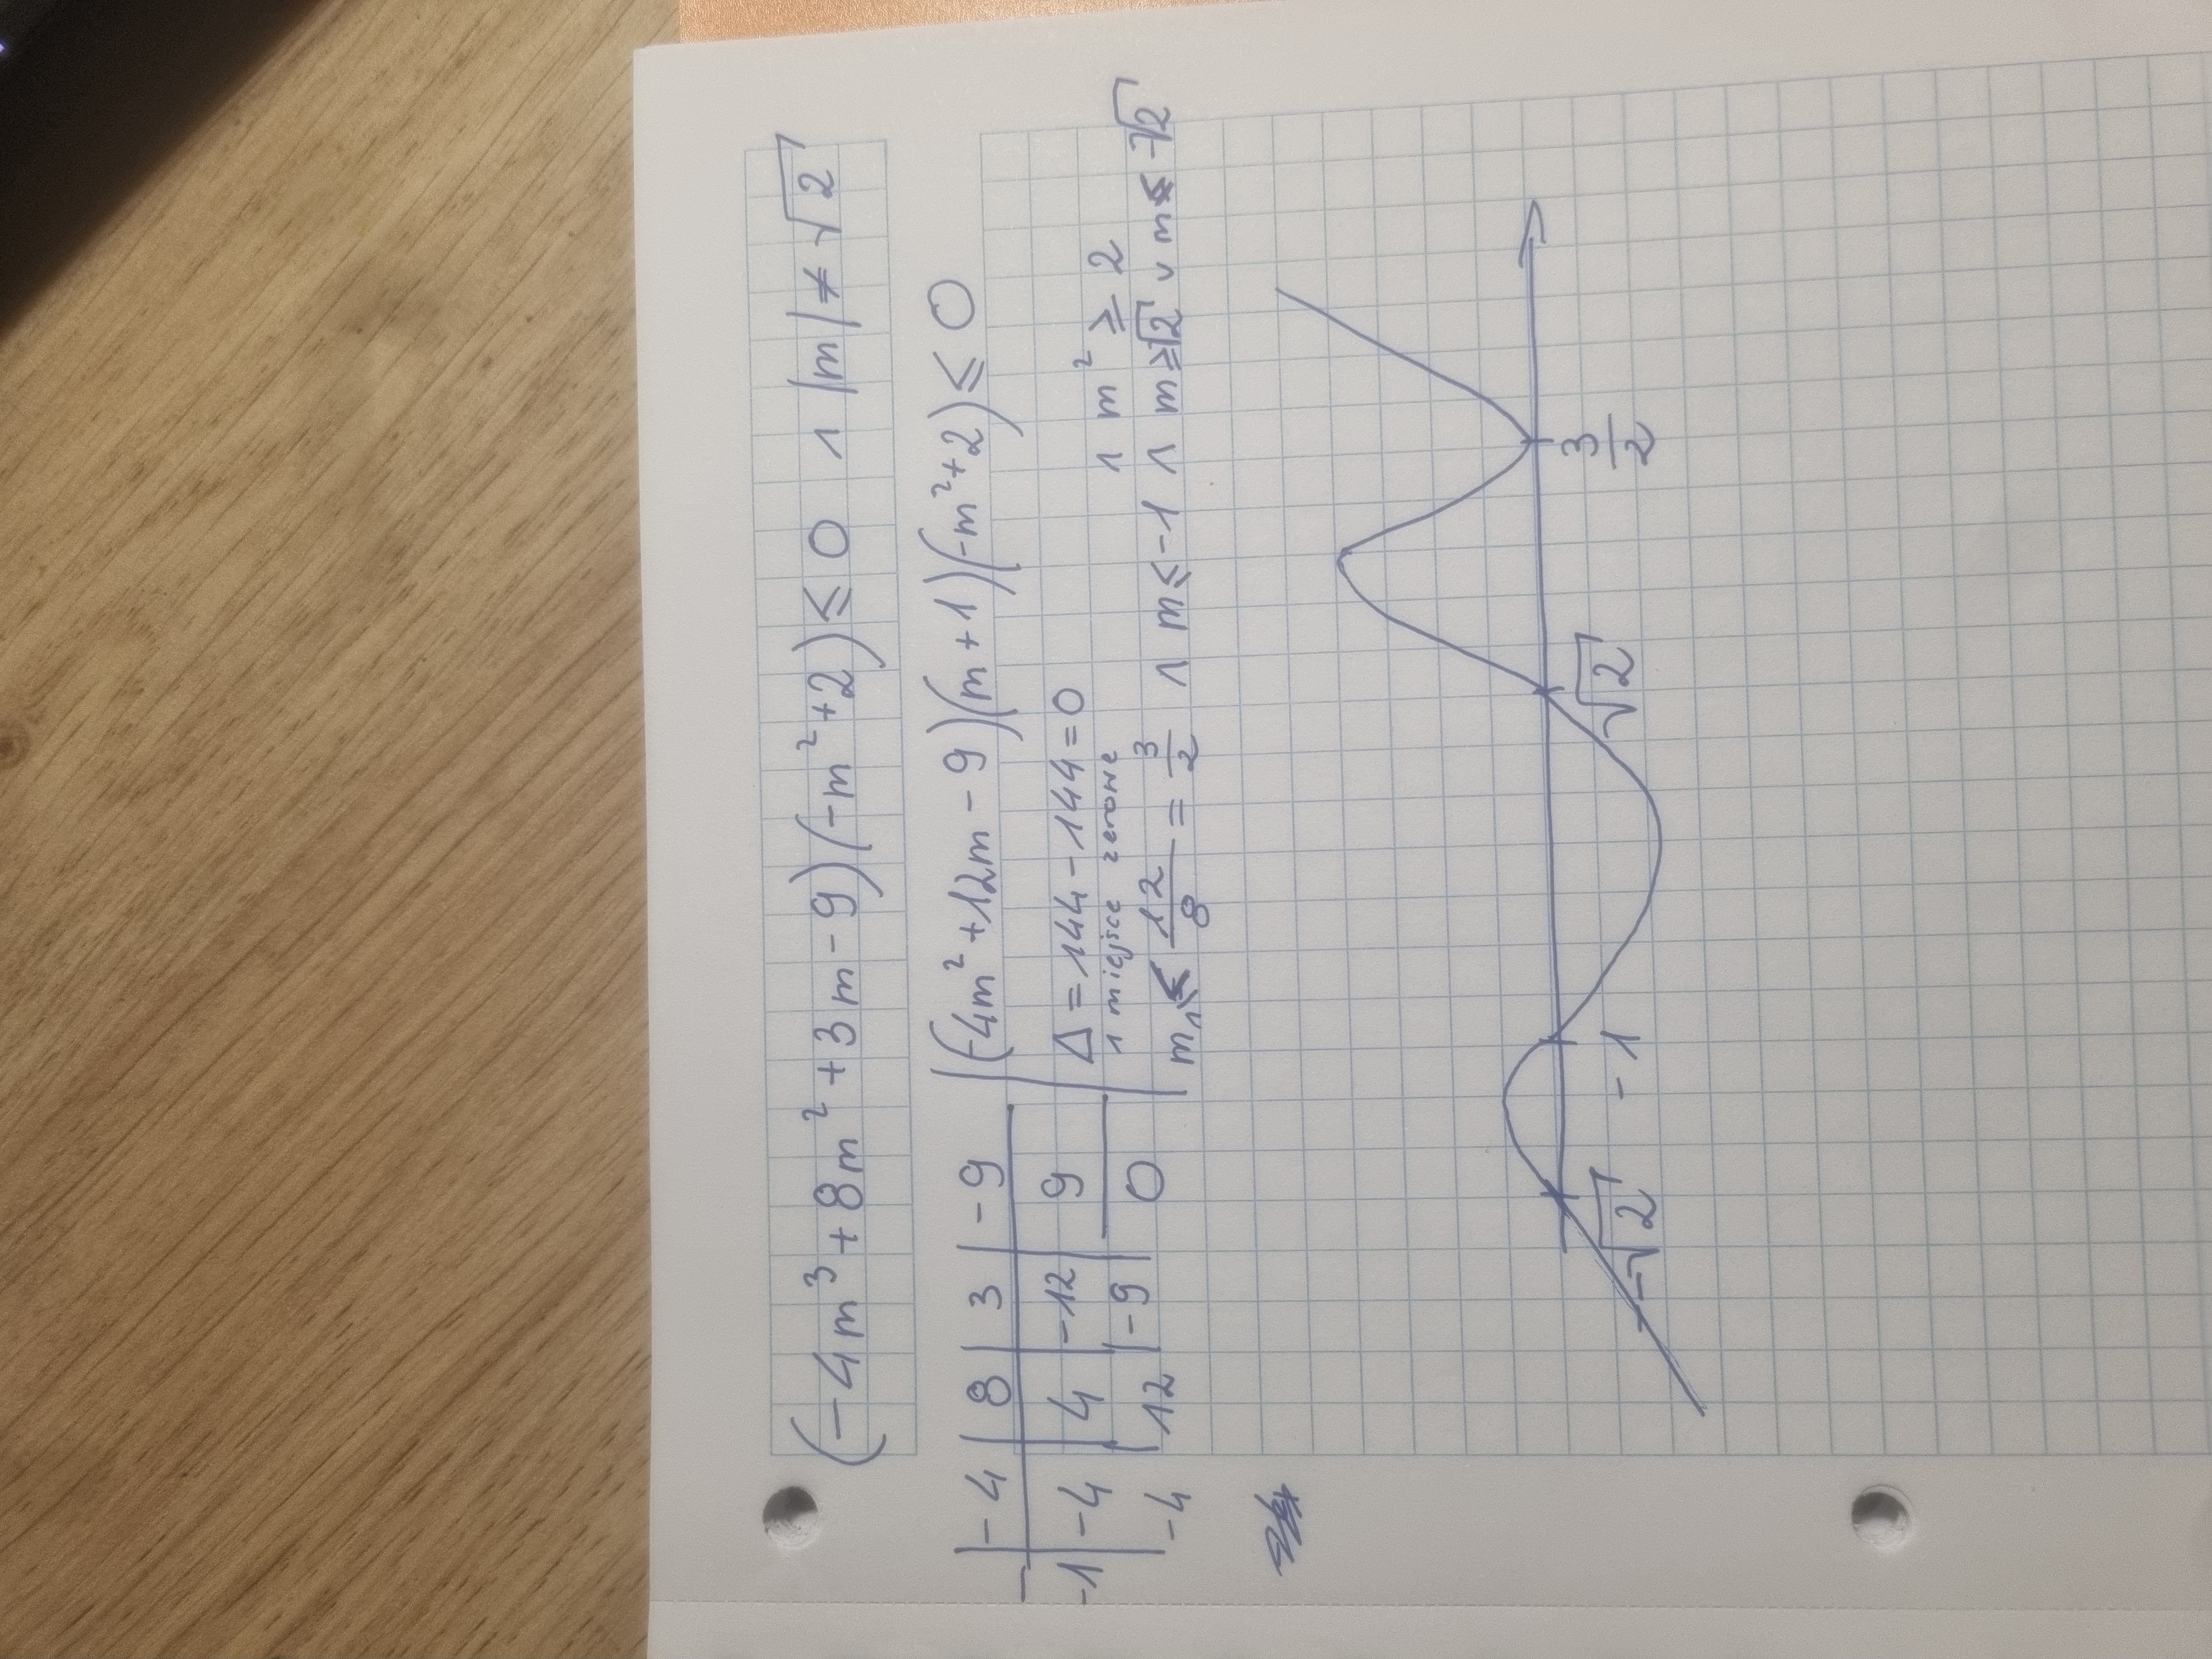 (-4m³+8m²+3m-9)(-m²+2)≤0 ∧ |m|≠√2
-4 | 8 | 3 | -9
-1 | -4 | 4 | -12 | 9
-4 | 12 | -9 | 0
(-4m²+12m-9)(m+1)(-m²+2)≤0
Δ=144-144=0
1 miejsce zerowe ∧ m²≥2
m₁≤12/8=3/2 ∧ m≤-1 ∧ m≥√2 ∨ m≤-√2
-√2 -1 √2 3/2